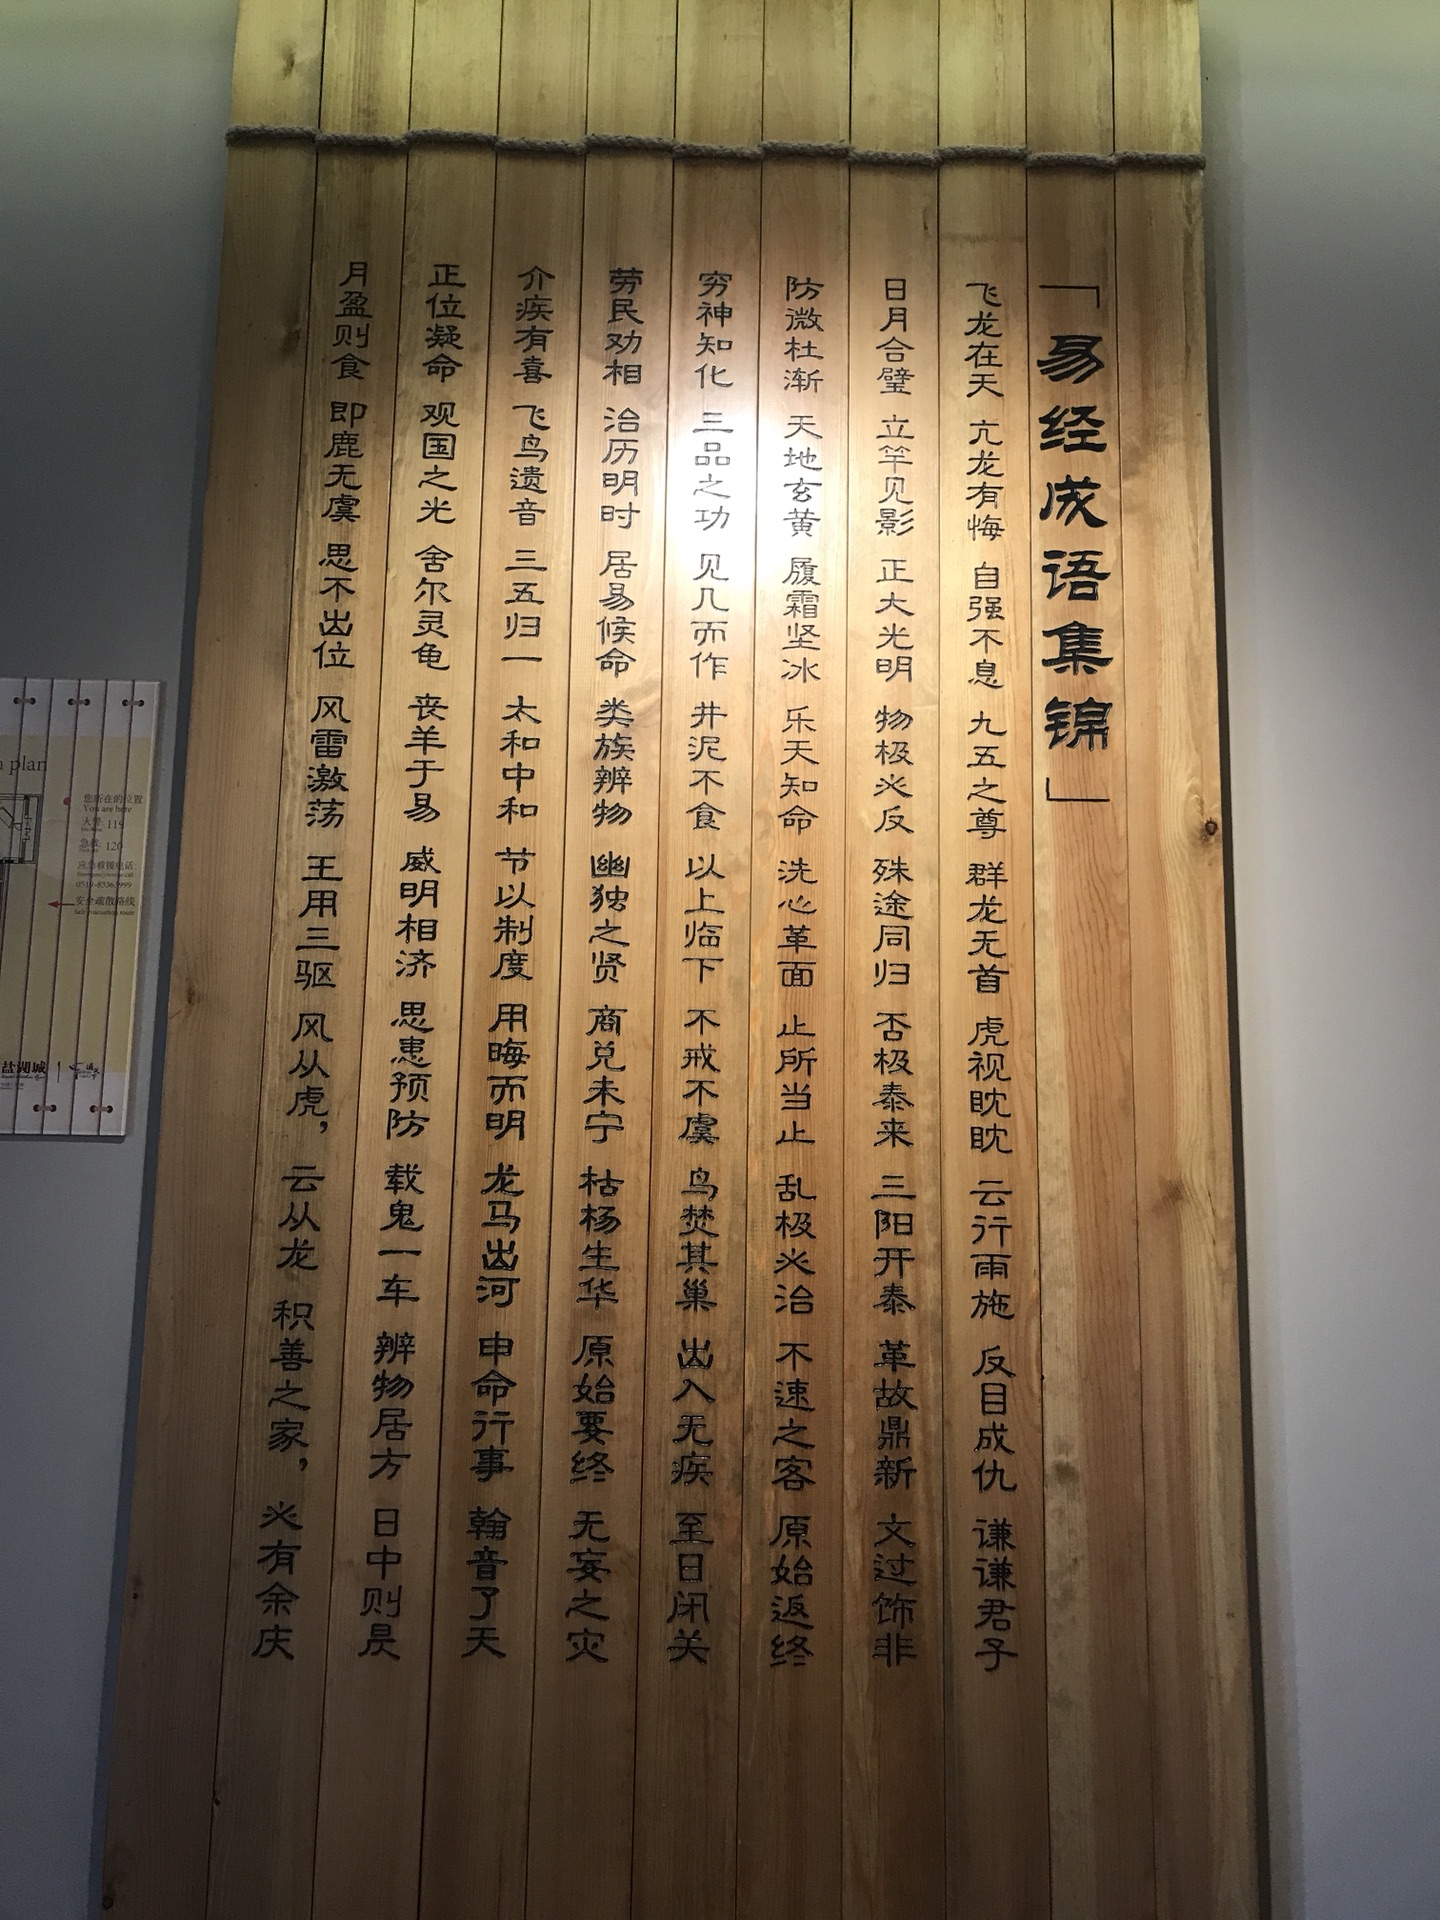 「易经成语集锦」
飞龙在天 亢龙有悔 自强不息 九五之尊 群龙无首 虎视眈眈 云行雨施 反目成仇 谦谦君子
日月合璧 立竿见影 正大光明 物极必反 殊途同归 否极泰来 三阳开泰 革故鼎新 文过饰非
防微杜渐 天地玄黄 履霜坚冰 乐天知命 洗心革面 止所当止 乱极必治 不速之客 原始返终
穷神知化 三品之功 见几而作 井泥不食 以上临下 不戒不虞 鸟焚其巢 出入无疾 至日闭关
劳民劝相 治历明时 居易候命 类族辨物 幽独之贤 商兑未宁 枯杨生华 原始要终 无妄之灾
介疾有喜 飞鸟遗音 三五归一 太和中和 节以制度 用晦而明 龙马出河 申命行事 翰音了天
正位凝命 观国之光 舍尔灵龟 丧羊于易 威明相济 思患预防 载鬼一车 辨物居方 日中则昃
月盈则食 即鹿无虞 思不出位 风雷激荡 王用三驱 风从虎， 云从龙 积善之家， 必有余庆
n plan
您所在的位置
You are here
火警: 119
急救: 120
应急救援电话:
安全疏散路线
盐湖城